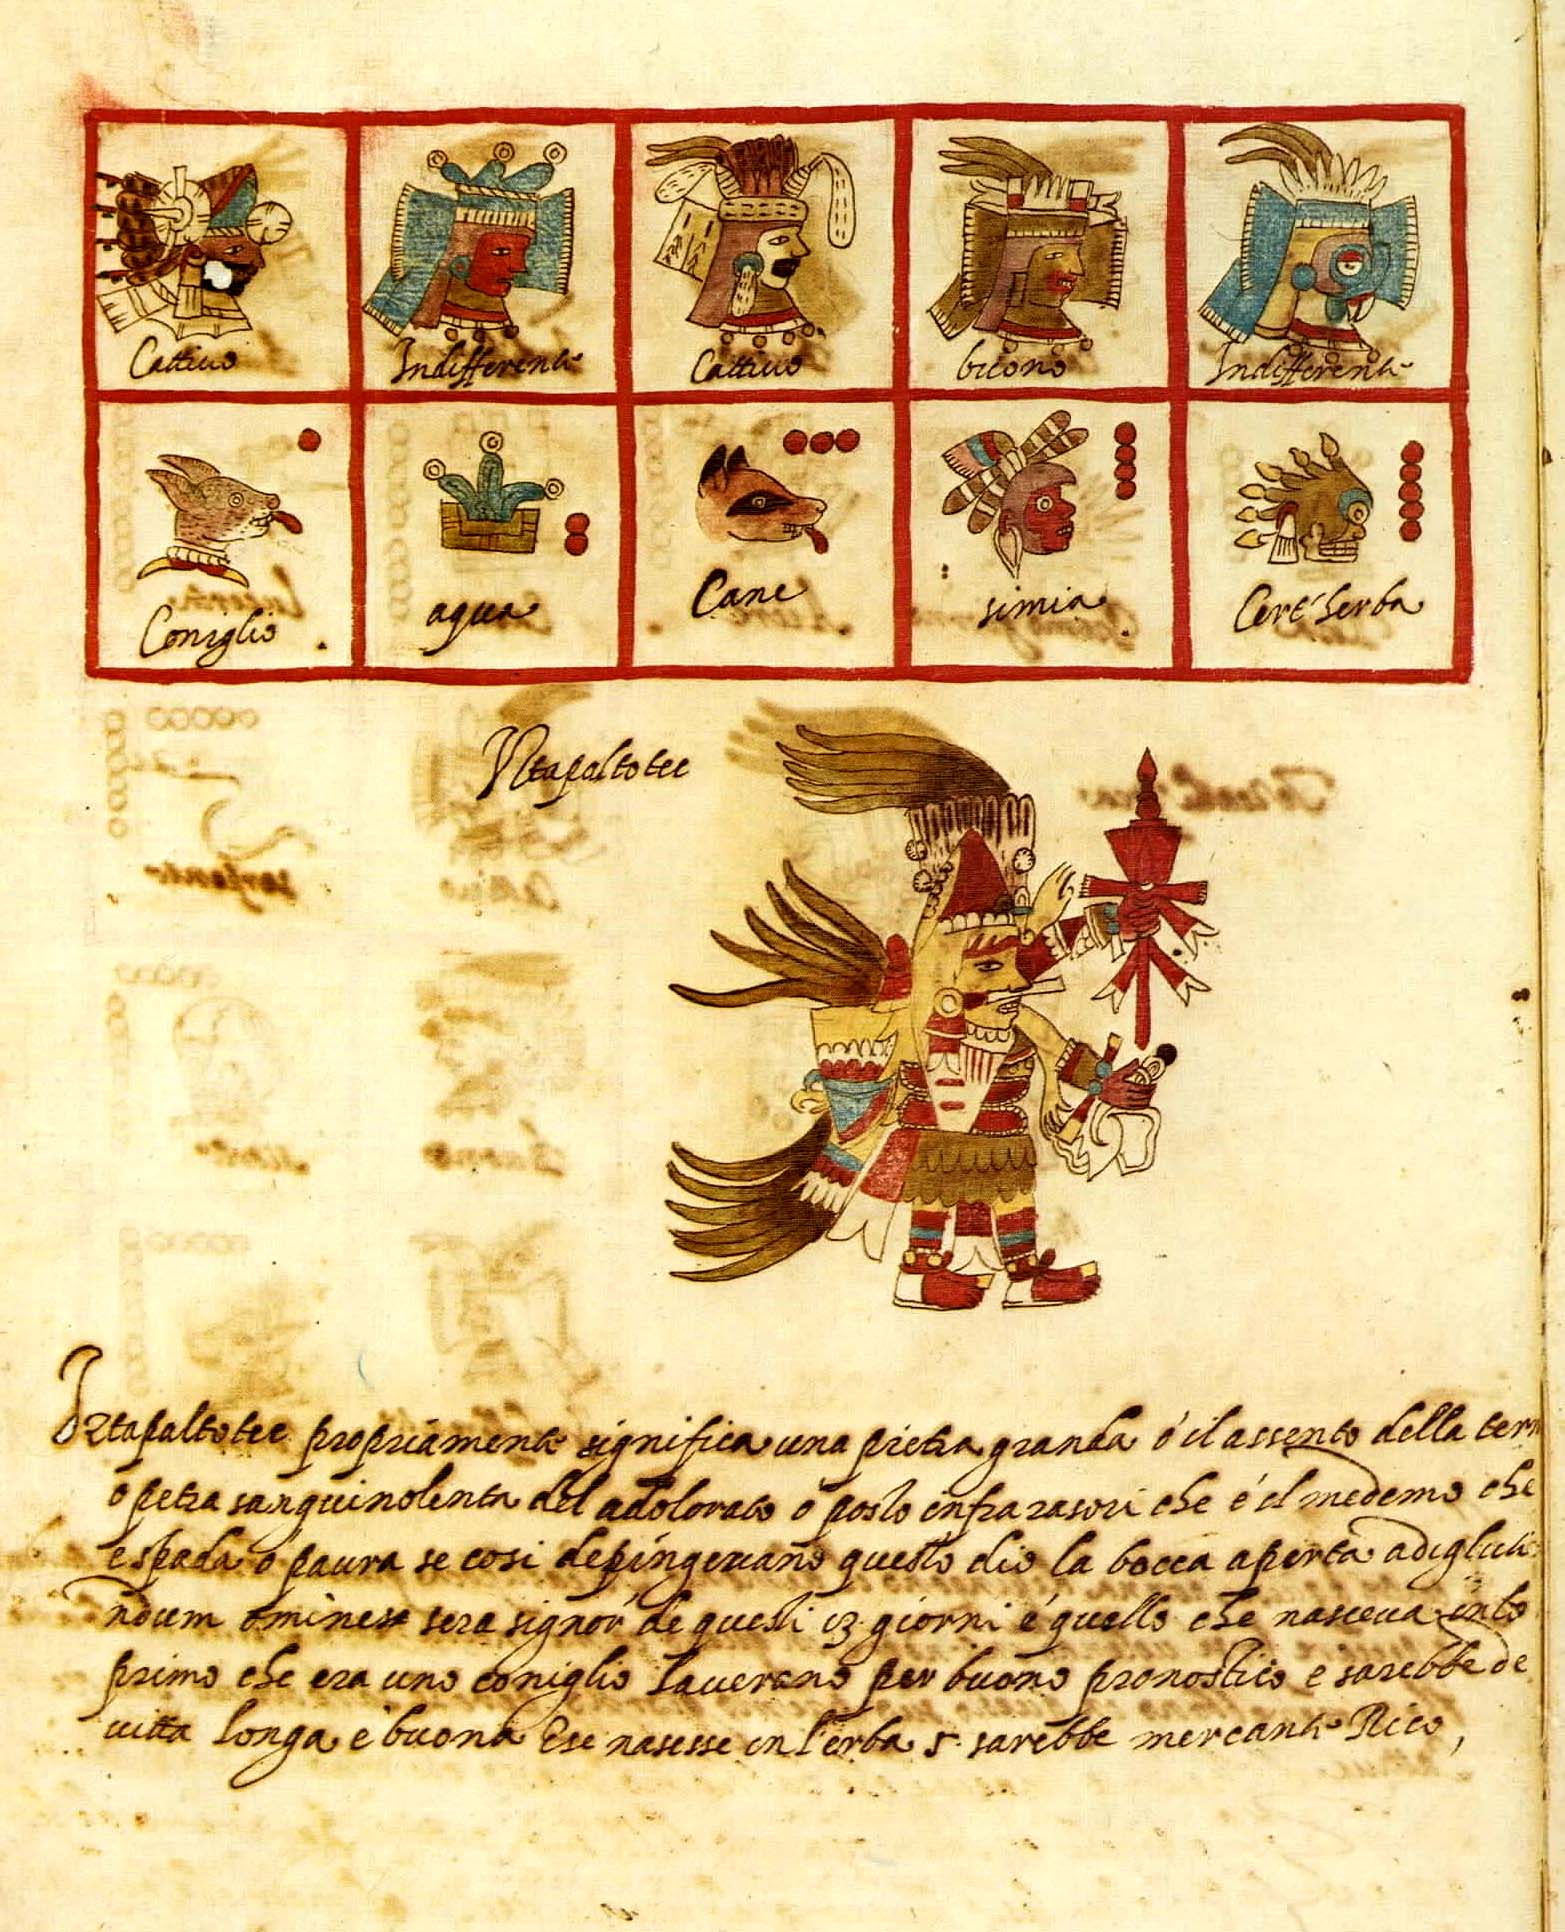 Cattiuo Indifferente Cattiuo buono Indifferente
Coniglio agua Cane simia Cert'herba
Iztapaltotec
Iztapaltotec propriamente significa una pietra granda o il assento della terra
o petra sanguinolenta del adolorato o posto infra rasori che é il medemo che
espada o paura se cosi depingeuano questo dio la bocca aperta adegluti
ndum omines sera signor de questi 13 giorni é quello che nasceua in lo
primo che era uno coniglio haueuano per buono pronostico e sarebbe de
uitta longa é buona Ese nasesse in l'erba 5 sarebbe mercante Rico,